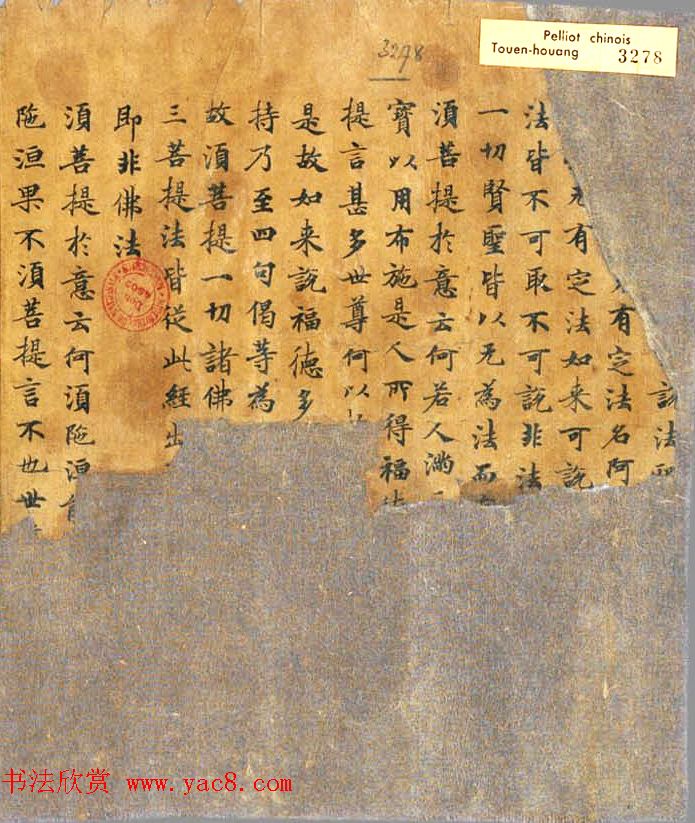 Pelliot chinois
Touen-houang 3278
3278
說法
有定法名阿
无有定法如来可說
法皆不可取不可說非法
一切賢聖皆以无為法而
須菩提於意云何若人滿
寶以用布施是人所得福
提言甚多世尊何以
是故如来說福德多
持乃至四句偈等為
故須菩提一切諸佛
三菩提法皆従此經出
即非佛法
須菩提於意云何須陁洹
陁洹果不須菩提言不也世
书法欣赏 www.yac8.com